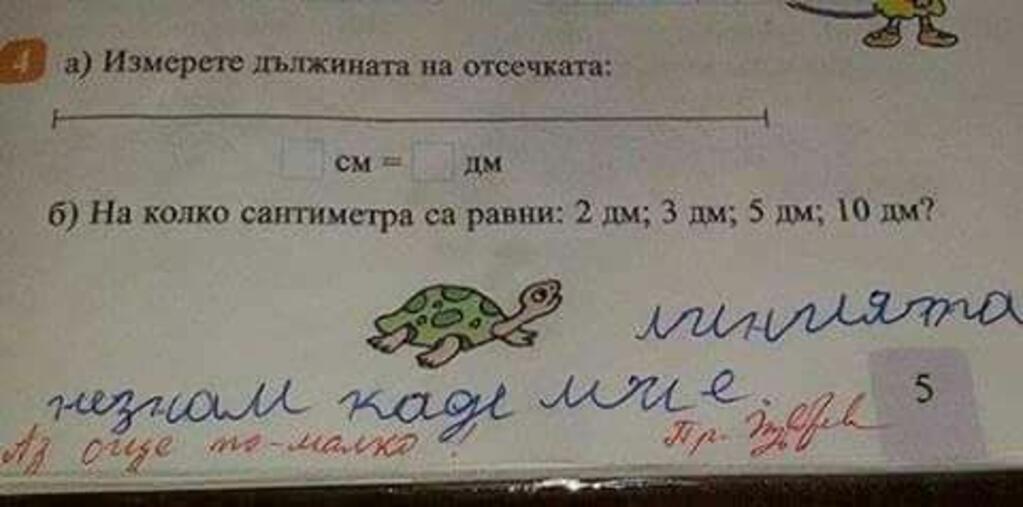 4 а) Измерете дължината на отсечката:
см = дм
б) На колко сантиметра са равни: 2 дм; 3 дм; 5 дм; 10 дм?
линията
незнам каде ми е.
5
Аз още по-малко!
Пр.